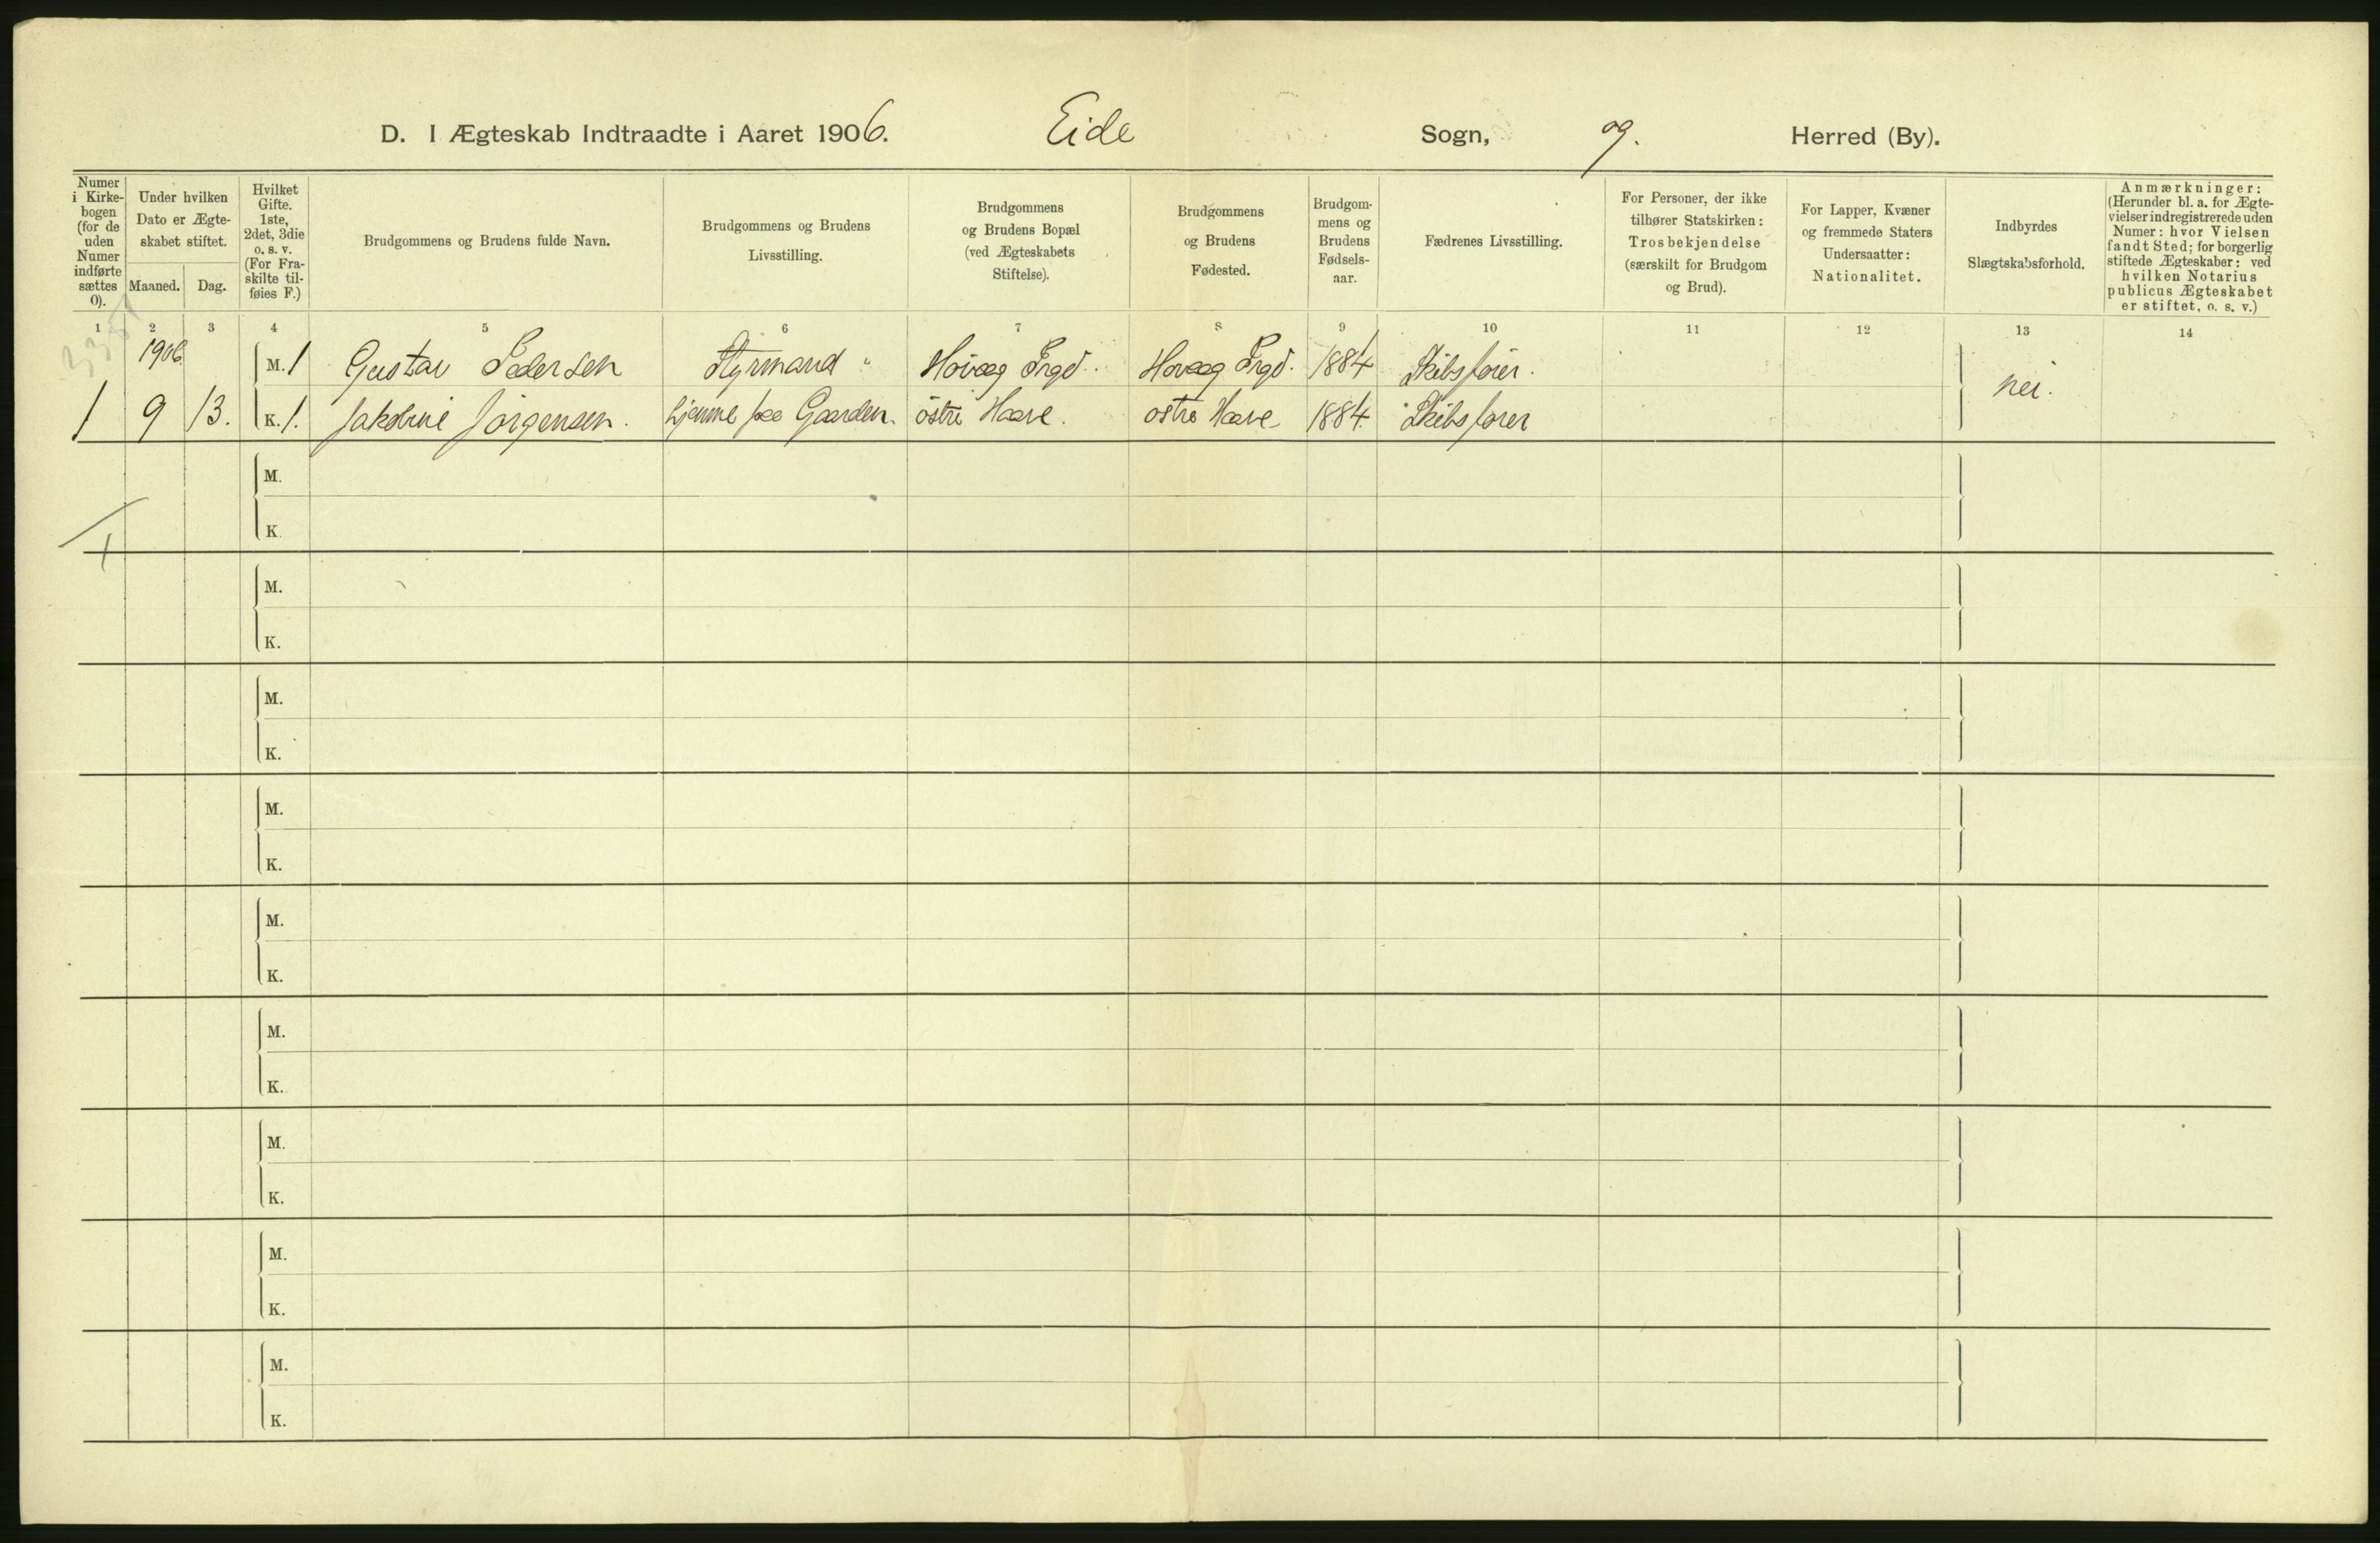 D. I Ægteskab Indtraadte i Aaret 1906. Eide Sogn, og. Herred (By).
Numer i Kirkebogen (for de uden Numer indførte sættes 0).
Under hvilken Dato er Ægteskabet stiftet.
Maaned. Dag.
Hvilket Gifte. 1ste, 2det, 3die o. s. v. (For Fraskilte tilføies F.)
Brudgommens og Brudens fulde Navn.
Brudgommens og Brudens Livsstilling.
Brudgommens og Brudens Bopæl (ved Ægteskabets Stiftelse).
Brudgommens og Brudens Fødested.
Brudgommens og Brudens Fødselsaar.
Fædrenes Livsstilling.
For Personer, der ikke tilhører Statskirken: Trosbekjendelse (særskilt for Brudgom og Brud).
For Lapper, Kvæner og fremmede Staters Undersaatter: Nationalitet.
Indbyrdes Slægtskabsforhold.
Anmærkninger: (Herunder bl. a. for Ægtevielser indregistrerede uden Numer: hvor Vielsen fandt Sted; for borgerlig stiftede Ægteskaber: ved hvilken Notarius publicus Ægteskabet er stiftet, o. s. v.)
1 2 3 4 5 6 7 8 9 10 11 12 13 14
1906 M. 1 Gustav Pedersen Styrmand Høivaag Prgd. Høvaag Prgd. 1884 Skibsfører. nei.
1 9 13. K. 1. Jakobine Jørgensen. hjemme paa Gaarden. østre Haave. østre Haave 1884. Skibsfører
M.
K.
M.
K.
M.
K.
M.
K.
M.
K.
M.
K.
M.
K.
M.
K.
M.
K.